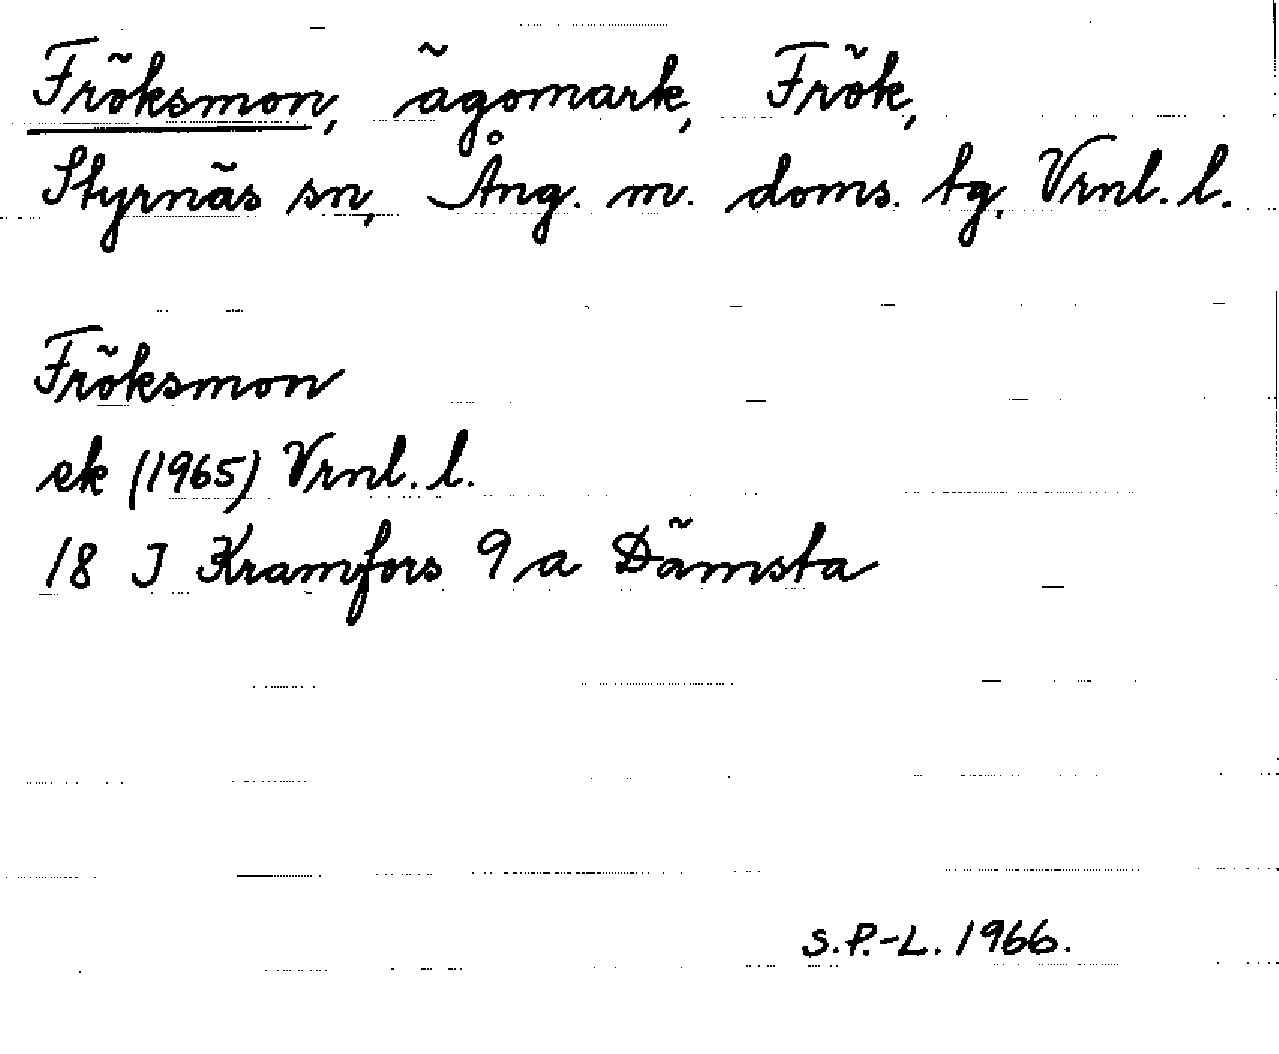 Fröksmon, ägomark, Frök,
Styrnäs sn, Ång. m. doms. tg. Vrnl. l.
Fröksmon
ek (1965) Vrnl. l.
18 J Kramfors 9 a Dämsta
S.P.-L. 1966.